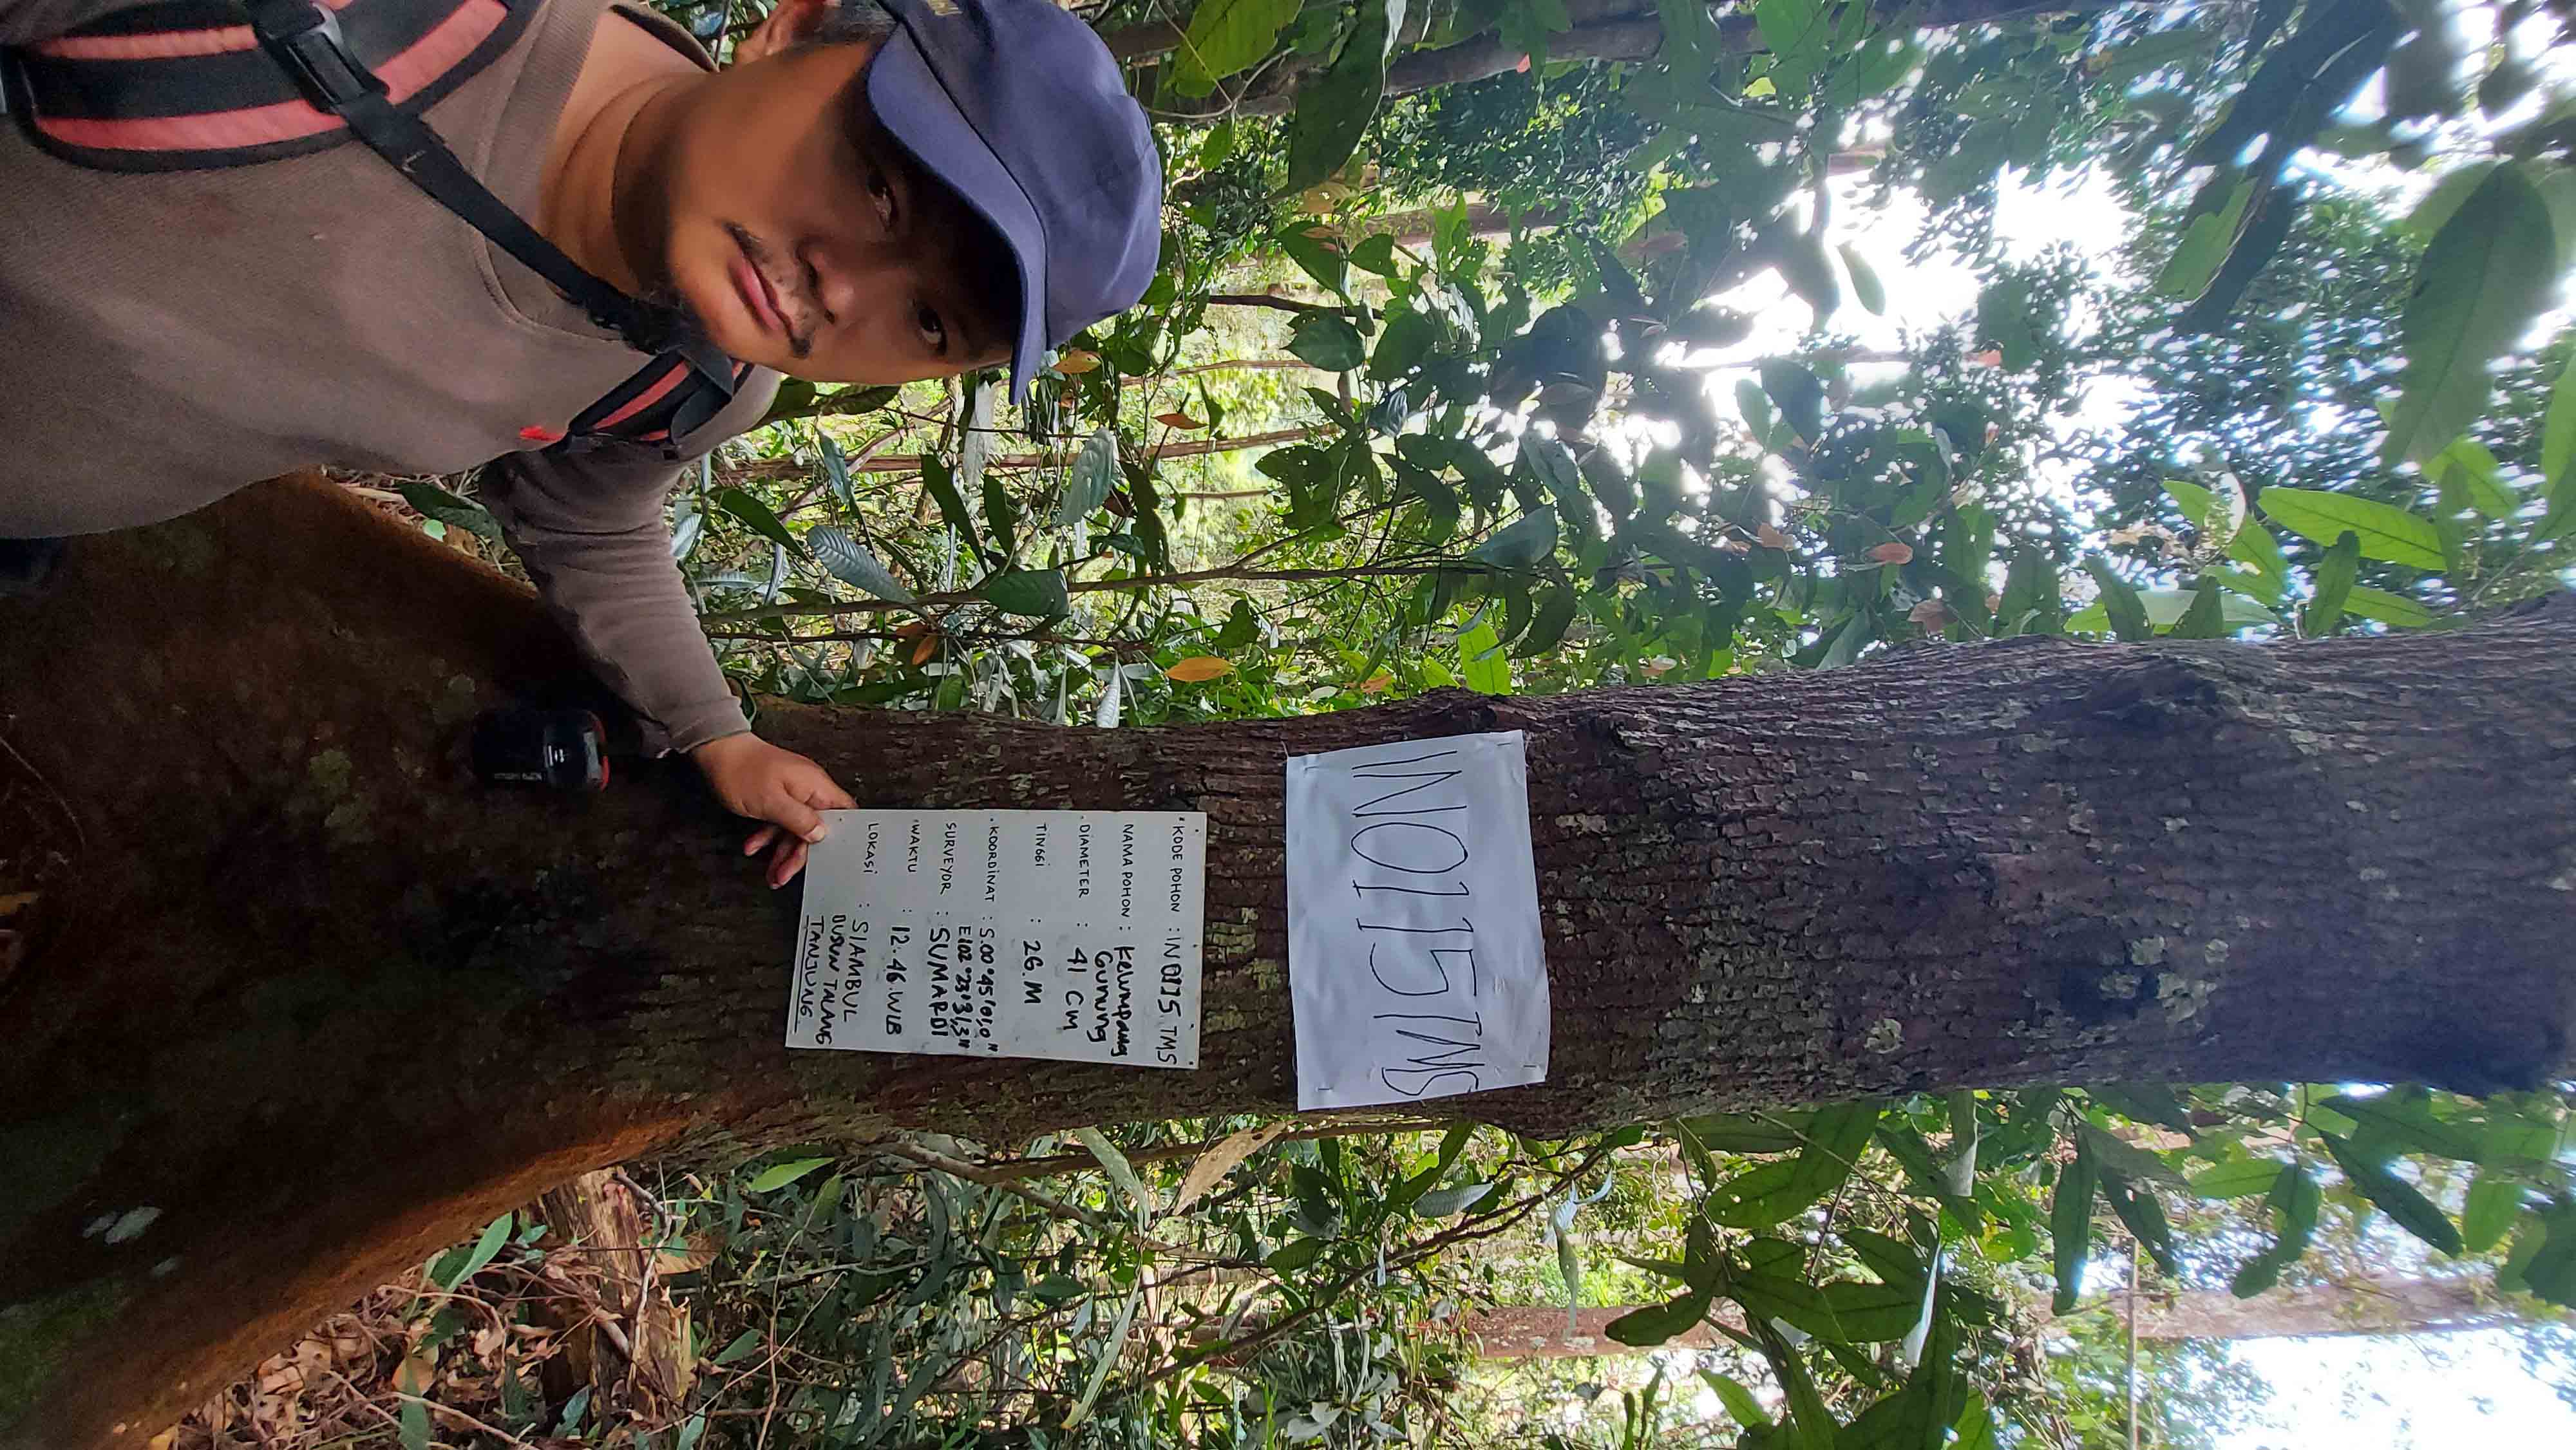 IN0115TMS
KODE POHON : IN 0115 TMS
NAMA POHON : Kelumpang
Gunung
DIAMETER : 41 CM
TINGGI : 26.M
KOORDINAT : S.00°45'01,0"
E102°23'31,3"
SURVEYOR : SUMARDI
WAKTU : 12.46.WIB
LOKASI : SIAMBUL
DUSUN TALANG
TANJUNG.